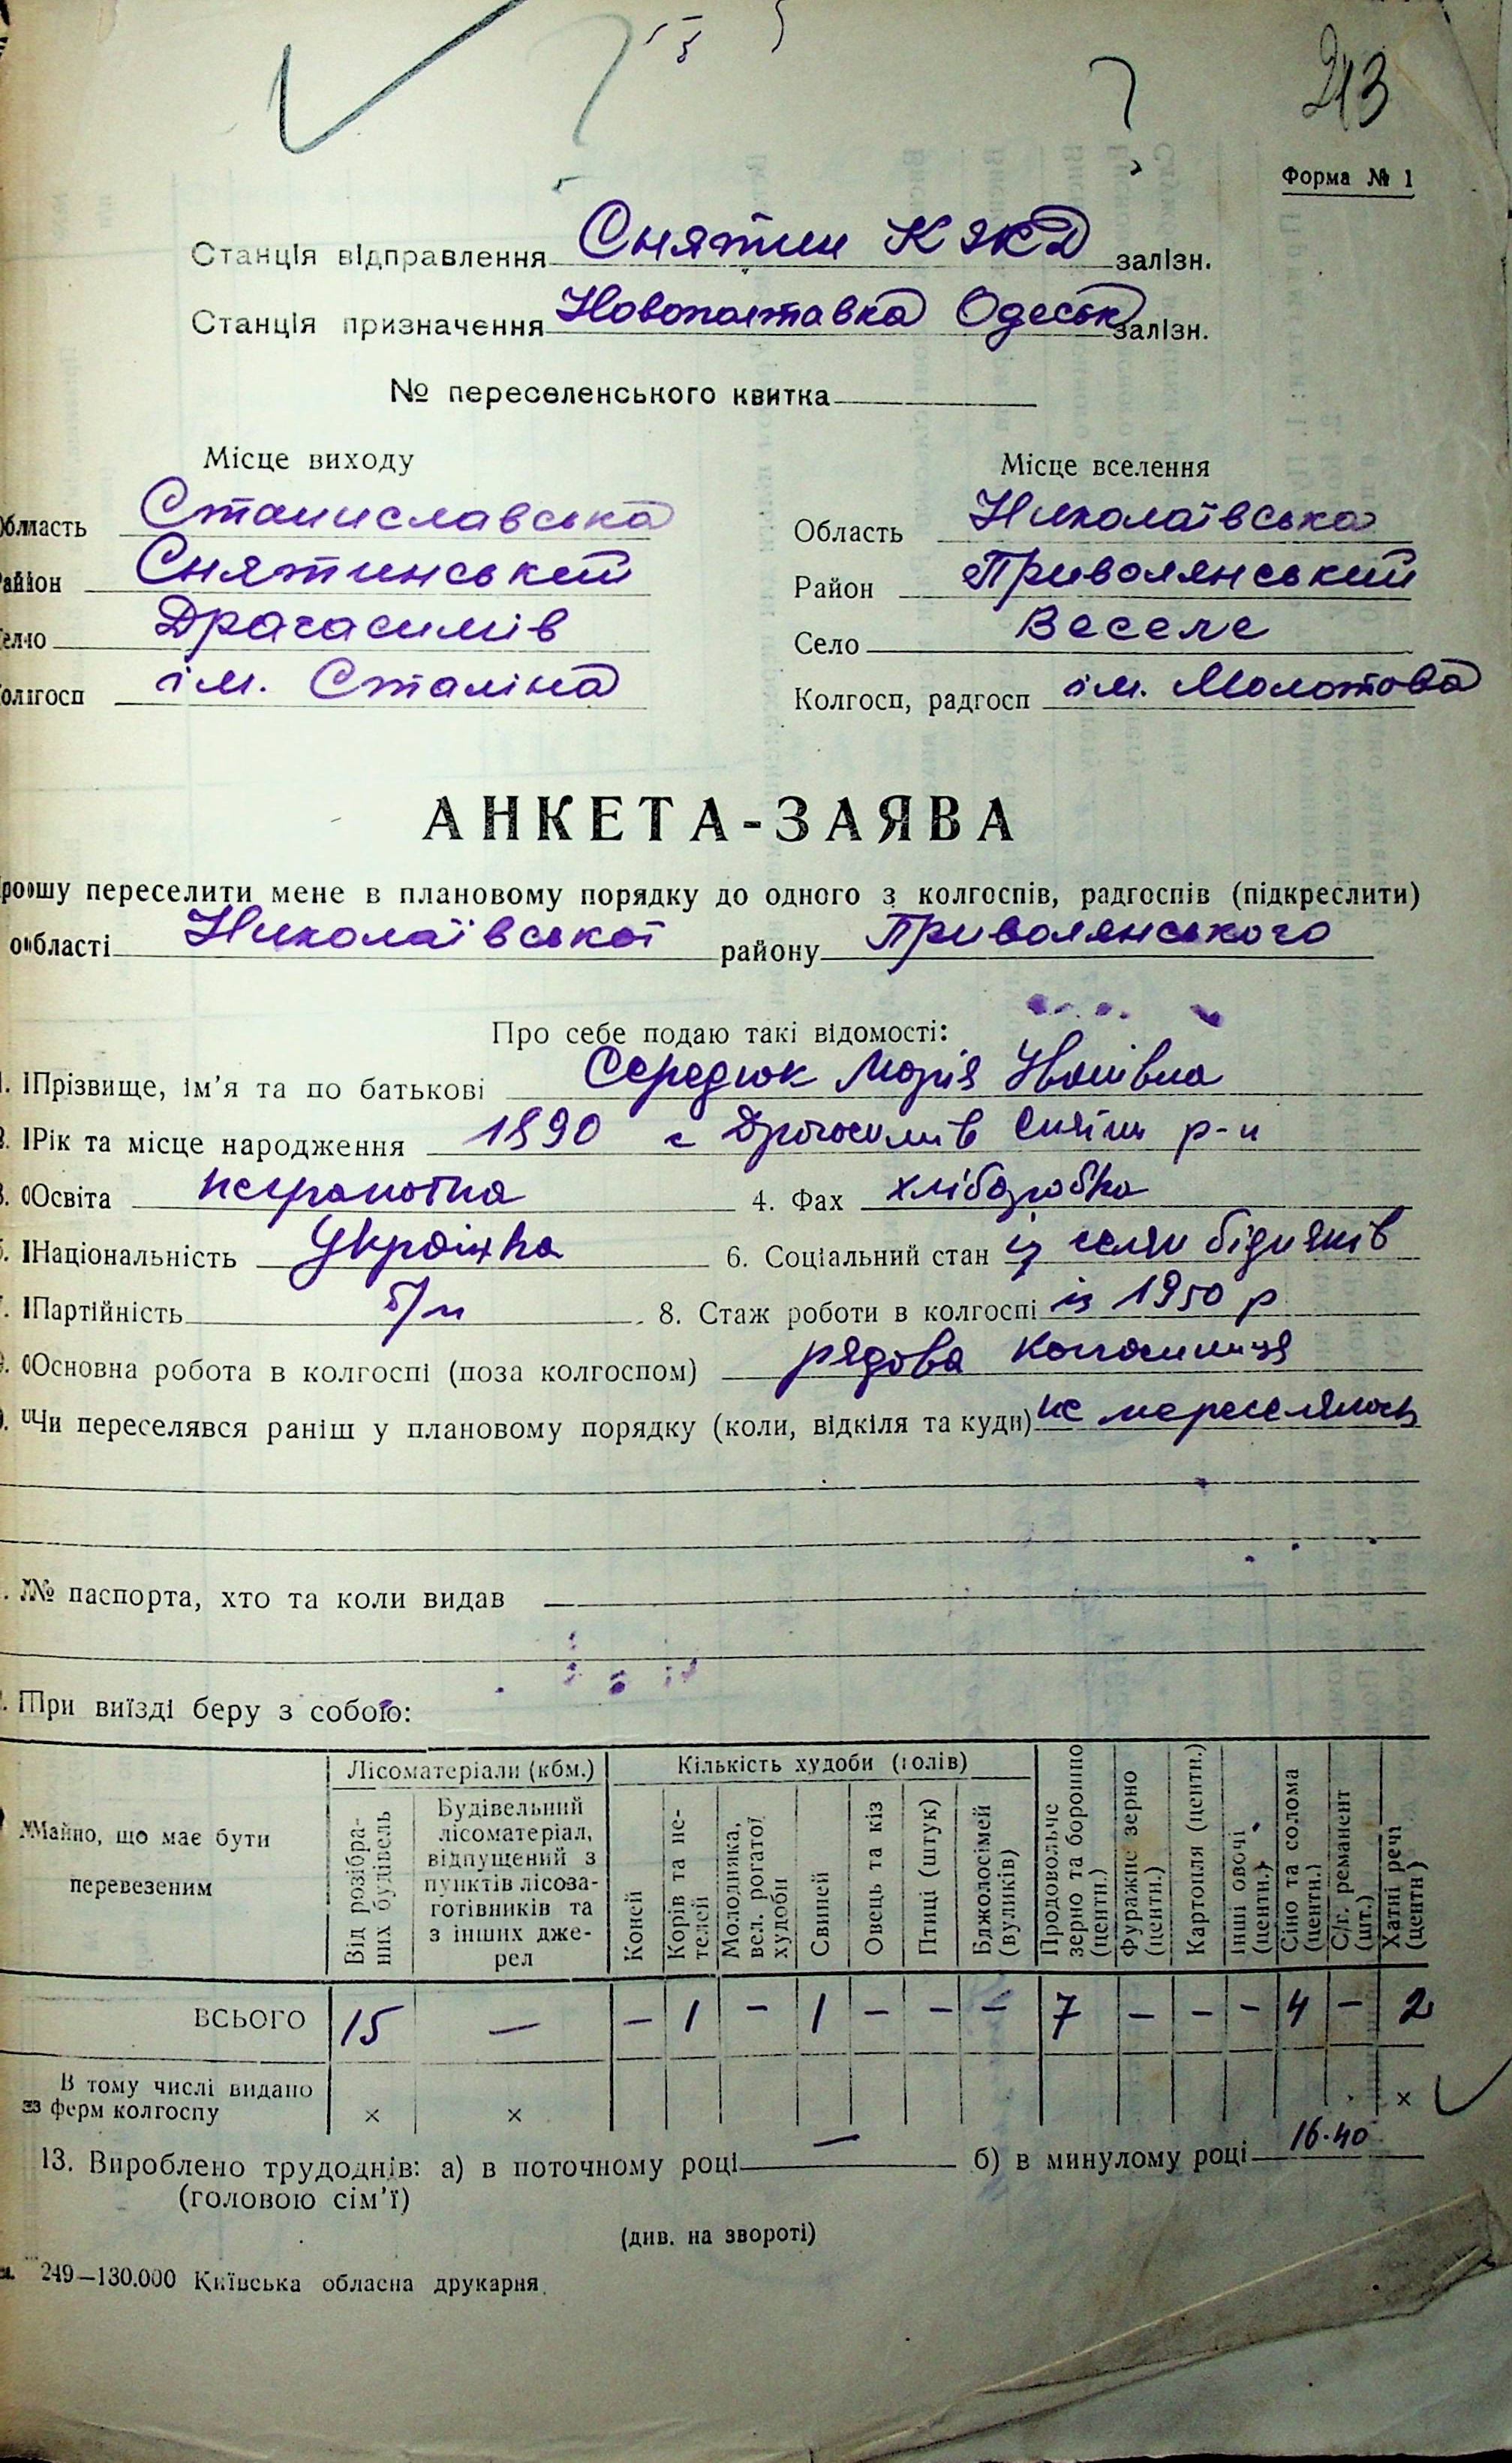 213
Форма № 1
Станція відправлення Снятин КЖД залізн.
Станція призначення Новополтавка Одеськ залізн.
№ переселенського квитка
Місце виходу Місце вселення
Область Станиславська Область Николаївська
Район Снятинський Район Приволянський
Село Драгасимів Село Веселе
Колгосп ім. Сталіна Колгосп, радгосп ім. Молотова
АНКЕТА-ЗАЯВА
Прошу переселити мене в плановому порядку до одного з колгоспів, радгоспів (підкреслити)
області Николаївської району Приволянського
Про себе подаю такі відомості:
1. Прізвище, ім’я та по батькові Середюк Марія Іванівна
2. Рік та місце народження 1890 с Драгасимів Снятин р-н
3. Освіта неграмотна 4. Фах хліборобка
5. Національність Українка 6. Соціальний стан із селян бідняків
7. Партійність б/п 8. Стаж роботи в колгоспі із 1950 р
9. Основна робота в колгоспі (поза колгоспом) рядова колгоспниця
10. Чи переселявся раніш у плановому порядку (коли, відкіля та куди) не переселялась
№ паспорта, хто та коли видав
При виїзді беру з собою:
Майно, що має бути перевезеним
Лісоматеріали (кбм.)
Від розібраних будівель
Будівельний лісоматеріал, відпущений з пунктів лісозаготівників та з інших джерел
Кількість худоби (голів)
Коней
Корів та нетелей
Молодняка, вел. рогатої худоби
Свиней
Овець та кіз
Птиці (штук)
Бджолосімей (вуликів)
Продовольче зерно та борошно (центн.)
Фуражне зерно (центн.)
Картопля (центн.)
Інші овочі (центн.)
Сіно та солома (центн.)
С/г. реманент (шт.)
Хатні речі (центн)
ВСЬОГО 15 — – 1 – 1 – – – 7 – – – 4 – 2
В тому числі видано
з ферм колгоспу × × ×
13. Вироблено трудоднів: а) в поточному році — б) в минулому році 16·40
(головою сім’ї)
(див. на звороті)
249—130.000 Київська обласна друкарня.